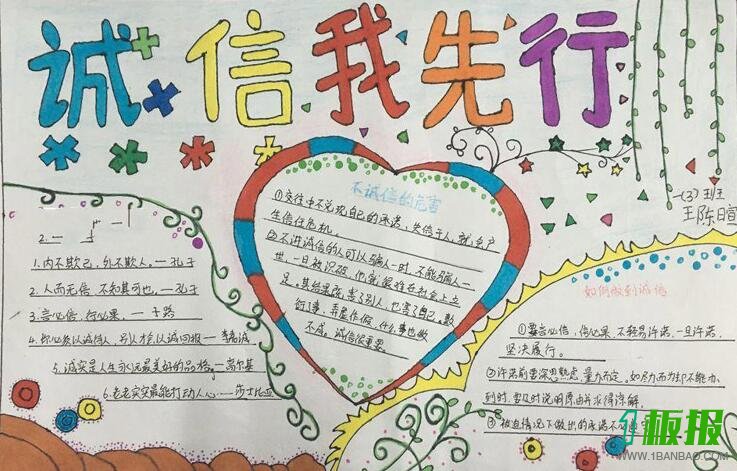 诚信我先行
一(3)班
王陈日宣
不诚信的危害
①交往中不兑现自己的承诺,失信于人,就会产
生信任危机。
②不讲诚信的人可以骗人一时,不能骗人一
世,一旦被识破,他就很难在社会上立
足,其结果既害了别人,也害了自己。数
衍了事,弄虚作假,什么事也做
不成。诚信很重要。
2.一
1.内不欺己,外不欺人。—孔子
2.人而无信,不知其可也。—孔子
3.言必信,行必果。—子路
4.你必须以诚待人,别人才会以诚回报—李嘉诚
5.诚实是人生永远最美好的品格。—高尔基
6.老老实实最能打动人心。—莎士比亚
如何做到诚信
①要言必信,行必果,不轻易许诺,一旦许诺,
坚决履行。
②许诺前要深思熟虑,量力而行。如尽力而为却不能办
到时,要及时说明原由并求得谅解。
③被迫情况下做出的承诺不
1板报
WWW.1BANBAO.COM